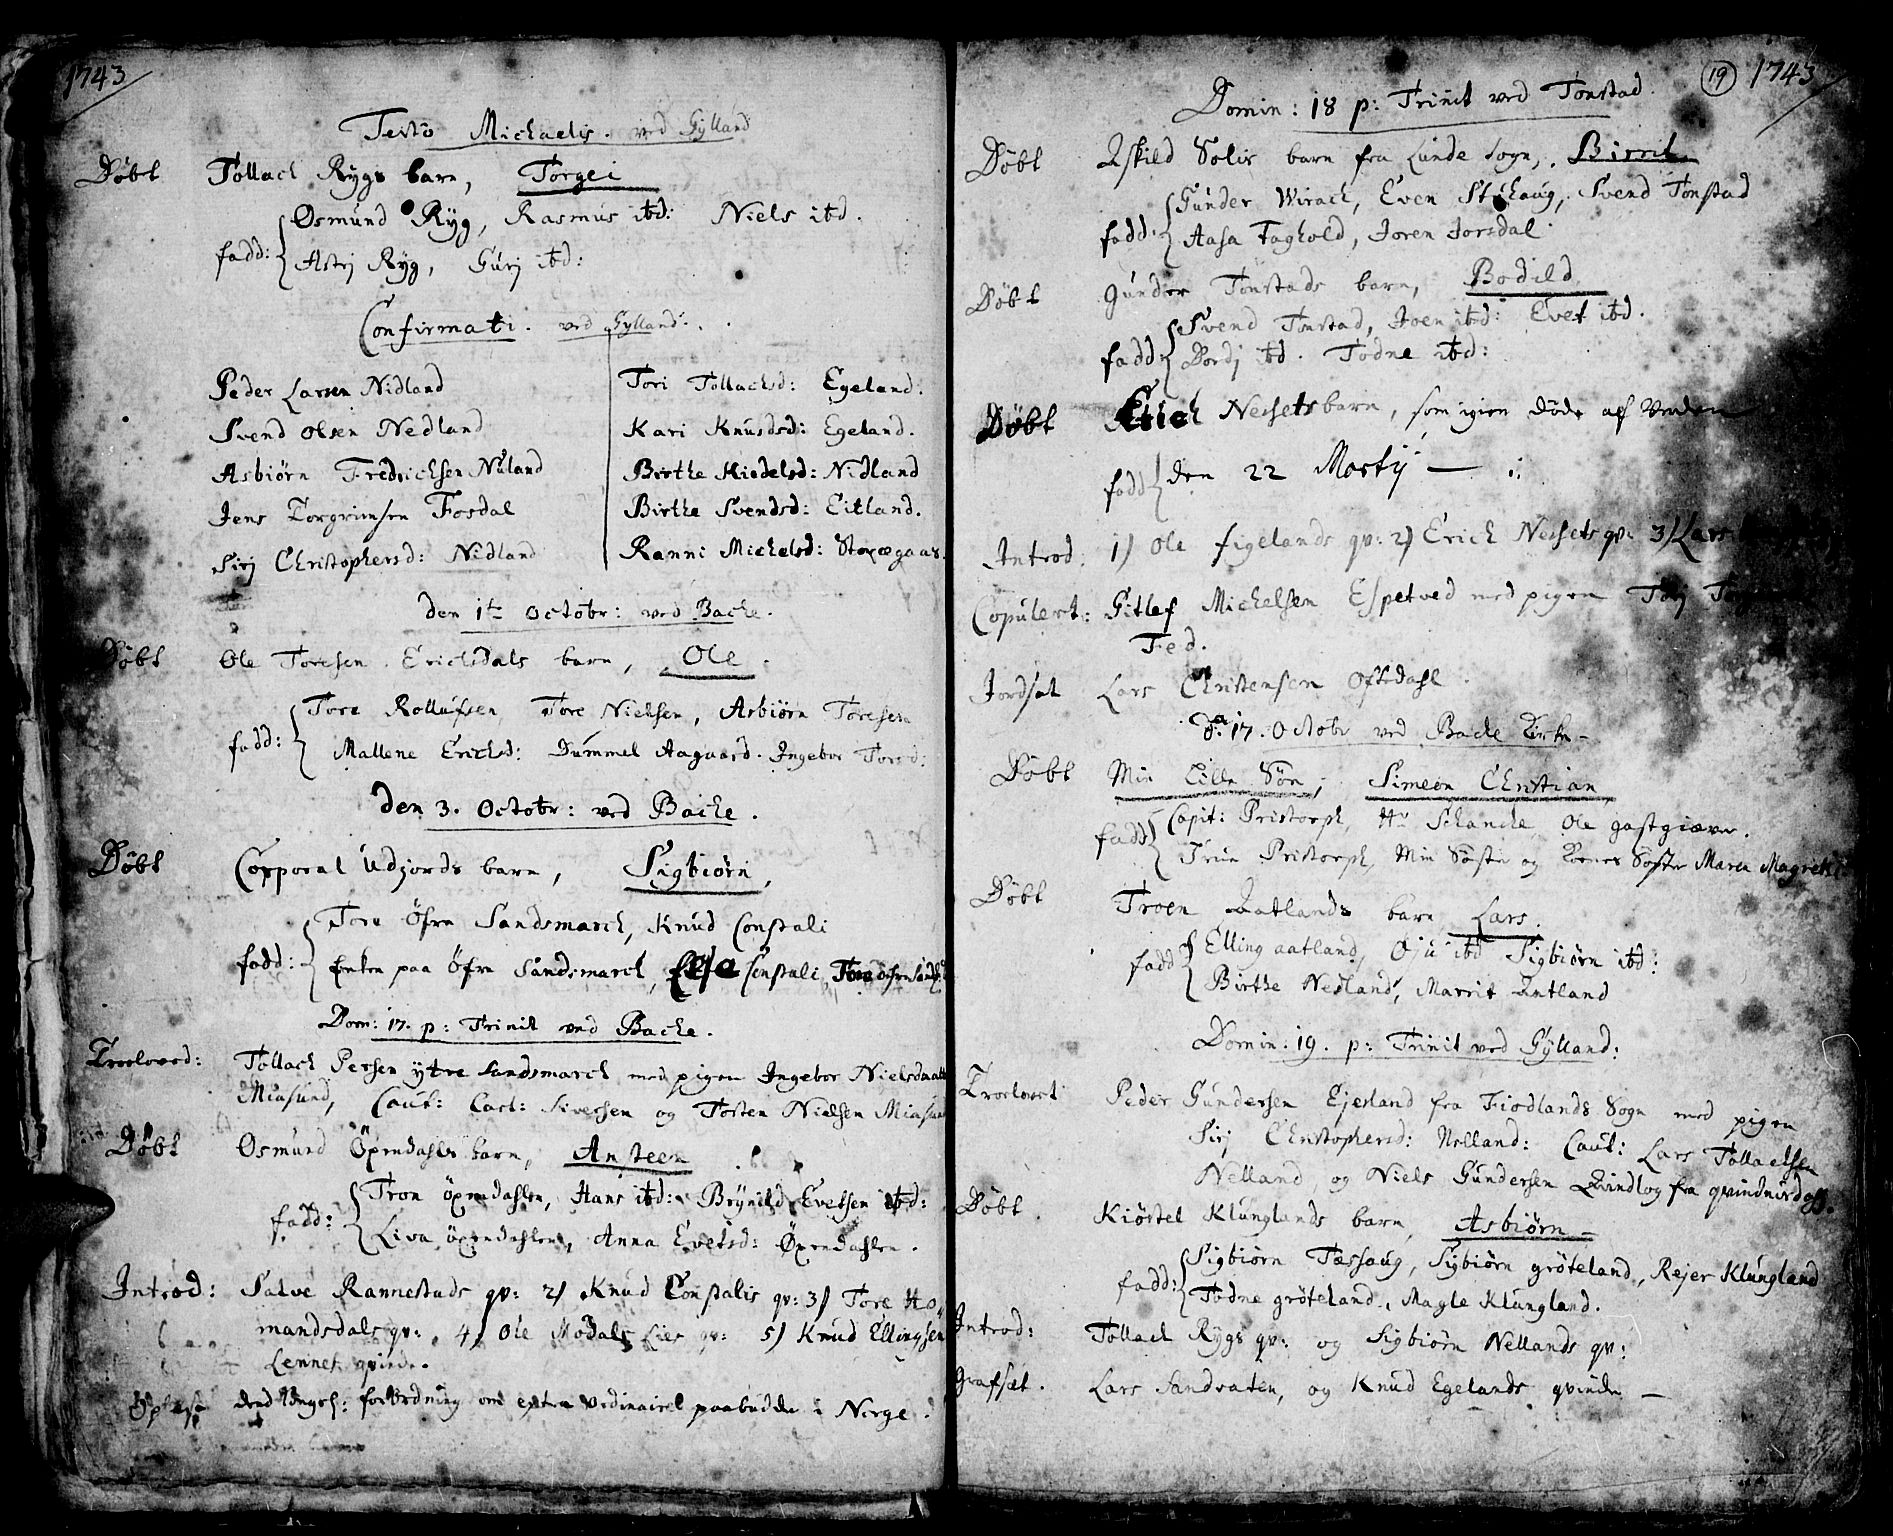 1743
Festo Michaelis. ved Gylland
Døbt Tollach Rygs barn, Torgei
Osmund Ryg, Rasmus ibd: Niels ibd.
fadd: Astrj Ryg, Gurj ibd:
Confirmati. ved Gylland.
Peder Larsen Nidland
Svend Olsen Nedland
Asbiørn Fredrichsen Nuland
Jens Torgrimsen Fosdal
Sirj Christophersd: Nidland
Tori Tollachsd: Egeland.
Kari Knudsd: Egeland.
Birthe Kiedelsd: Nidland
Birthe Svendsd: Eitland.
Ranni Michelsd: Storegaas.
den 1te Octobr: ved Bache.
Døbt Ole Toresen Erichsdals barn, Ole.
Tore Rollufsen Tore Nielsen, Asbiørn Toresen
fadd: Mallene Erichsd: Dummel Aagaard. Ingebor Toresd:
den 3. Octobr: ved Bache.
Døbt Corporal Udjords barn, Sigbiørn,
Tore Öfre Sandsmarch, Knud Constali
fadd: Enken paa Öfre Sandsmarch, Else Constali, Tore
Dom: 17. p: Trinit ved Bache.
Troeloved: Tollach Persen ytre Sandsmarch med pigen Ingebor Nielsdaatt
Miusund, Caut: Carl: Siversen og Tosten Nielsen Miusund
Døbt Osmund Öxendahls barn, Anteen
Tron öxendahlen, Hans ibd: Brynild Evetsen ibd:
fadd: Liva öxendahlen, Anna Evetsd: Öxendahlen.
Introd: Salve Rannestads qv: 2) Knud Constalis qv: 3) Tore Ho-
mandsdals qv: 4) Ole Modals Lier qv: 5) Knud Ellingsen
Lennes qvinde.
Oplæst dend Kongel: forordning om extra ordinairel paabudde i Norge.
19 1743
Domin: 18 p: Trinit ved Tonstad.
Døbt Askild Solis barn fra Lunde Sogn, Birrit
Gunder Wirach, Even Stihaug, Svend Tonstad
fadd: Aasa Faghold, Joren Jorsdal.
Døbt Gunder Tonstads barn, Bodild
Svend Tonstad, Joen ibd: Evet ibd.
fadd: Bordj ibd. Todne ibd:
Døbt Erich Nessets barn, som igien døde af
fadd den 22 Martij
Introd. 1) Ole figelands qv: 2) Erich Nessets qv: 3) Lars
Copulert: Gitlef Michelsen Espetved med pigen Torj
Fed.
Jordsat Lars Christensen Oftedahl.
d. 17. Octobr ved Bache Kirke
Døbt Min Lille Søn, Simeon Christian
Capit: Pristorph, Hr Schanche Ole gastgiæver.
fadd Trine Pristorph, Min Søster og Kones Søster Maren Magrethe
Døbt Troen Aatlands barn Lars.
Elling aatland, Oju ibd Sigbiørn ibd:
fadd Birthe Nedland, Marrit Aatland
Domin: 19. p: Trinit ved Gylland:
Troelovet Peder Gundersen Ejesland fra Fiodlands Sogn med pigen
Sirj Christophersd: Nelland: Caut: Lars Tollachsen
Nelland, og Niels Gundersen Qvindlog fra qvindnirdahl.
Døbt Kiøstel Klunglands barn, Asbiørn
Sigbiørn Tessaug, Sigbiørn grøteland, Rejer Klungland
fadd: Todne grøteland, Magle Klungland.
Introd: Tollach Rygs qv: og Sigbiørn Nellands qv:
Grafsæt. Lars Sandvaten, og Knud Egelands qvinde